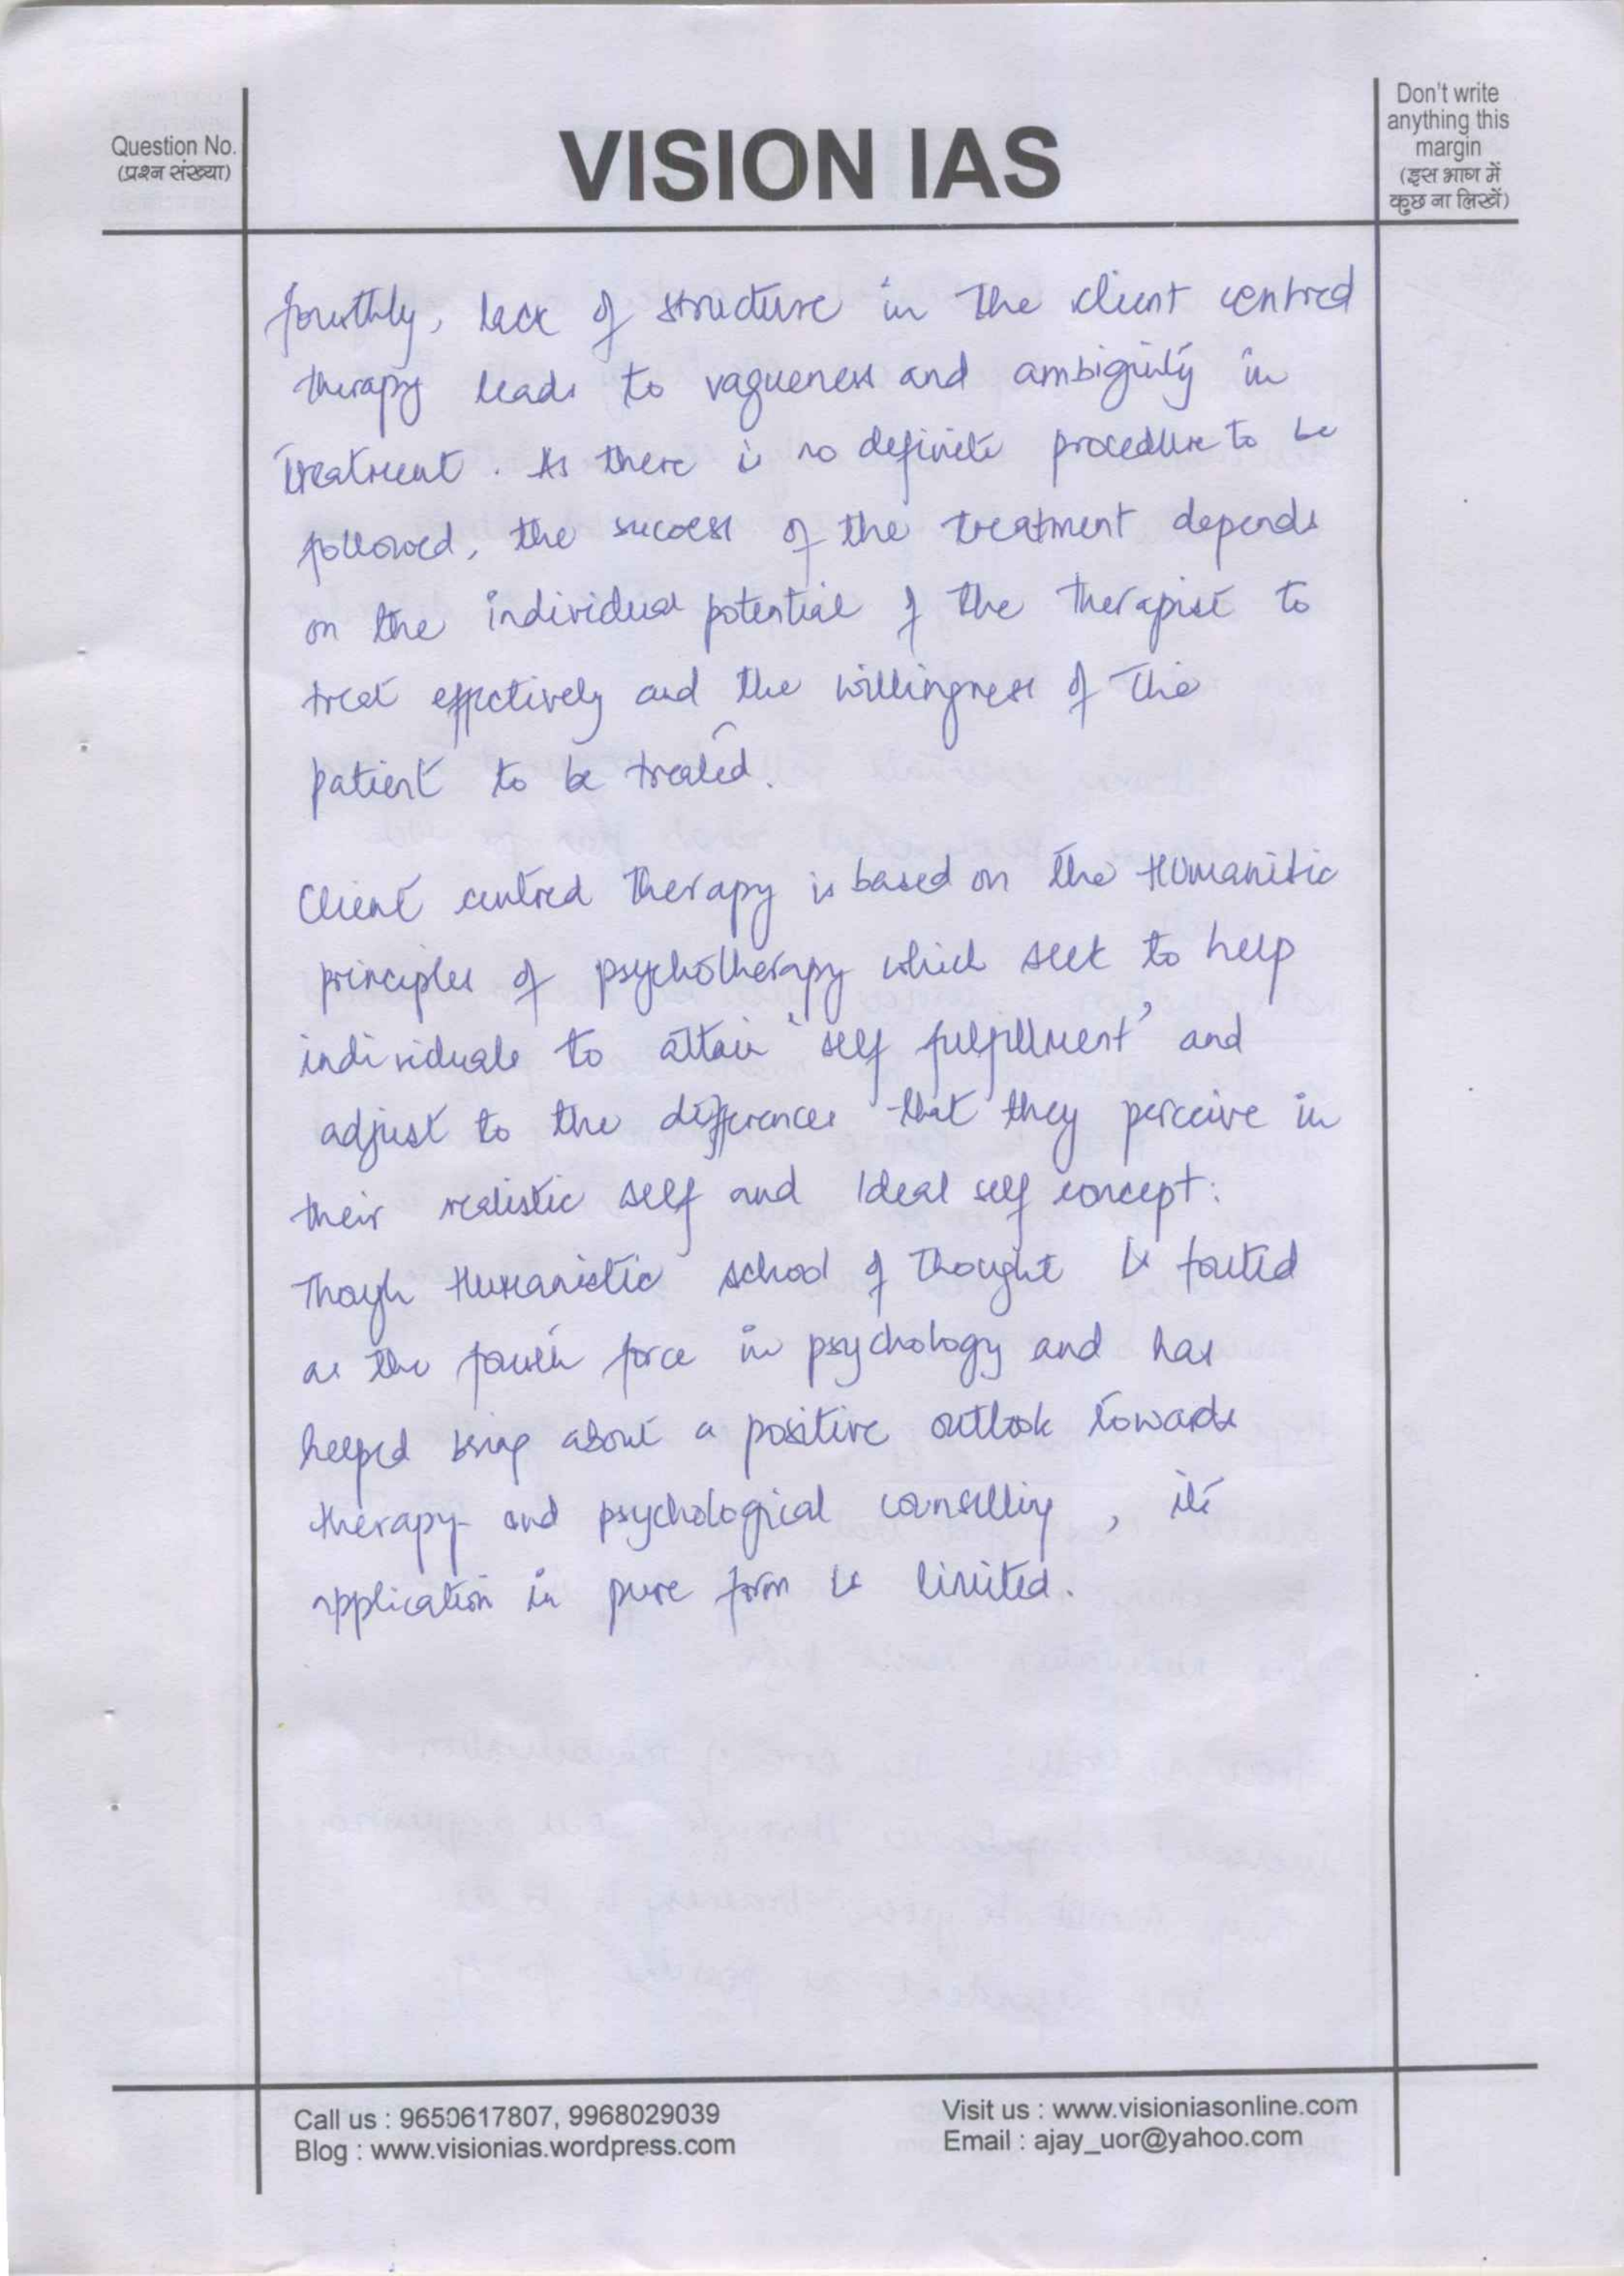 Question No.
(प्रश्न संख्या)
VISION IAS
Don't write
anything this
margin
(इस भाग में
कुछ ना लिखें)
fourthly, lack of structure in the client centred
therapy leads to vagueness and ambiguity in
treatment. As there is no definite procedure to be
followed, the success of the treatment depends
on the individual potential of the therapist to
treat effectively and the willingness of the
patient to be treated.
Client centred therapy is based on the Humanitic
principles of psychotherapy which seek to help
individuals to attain 'self fulfillment' and
adjust to the differences that they perceive in
their realistic self and Ideal self concept.
Though Humanistic school of thought is touted
as the fourth force in psychology and has
helped bring about a positive outlook towards
therapy and psychological counselling, its
application in pure form is limited.
Call us : 9650617807, 9968029039
Blog : www.visionias.wordpress.com
Visit us : www.visioniasonline.com
Email : ajay_uor@yahoo.com